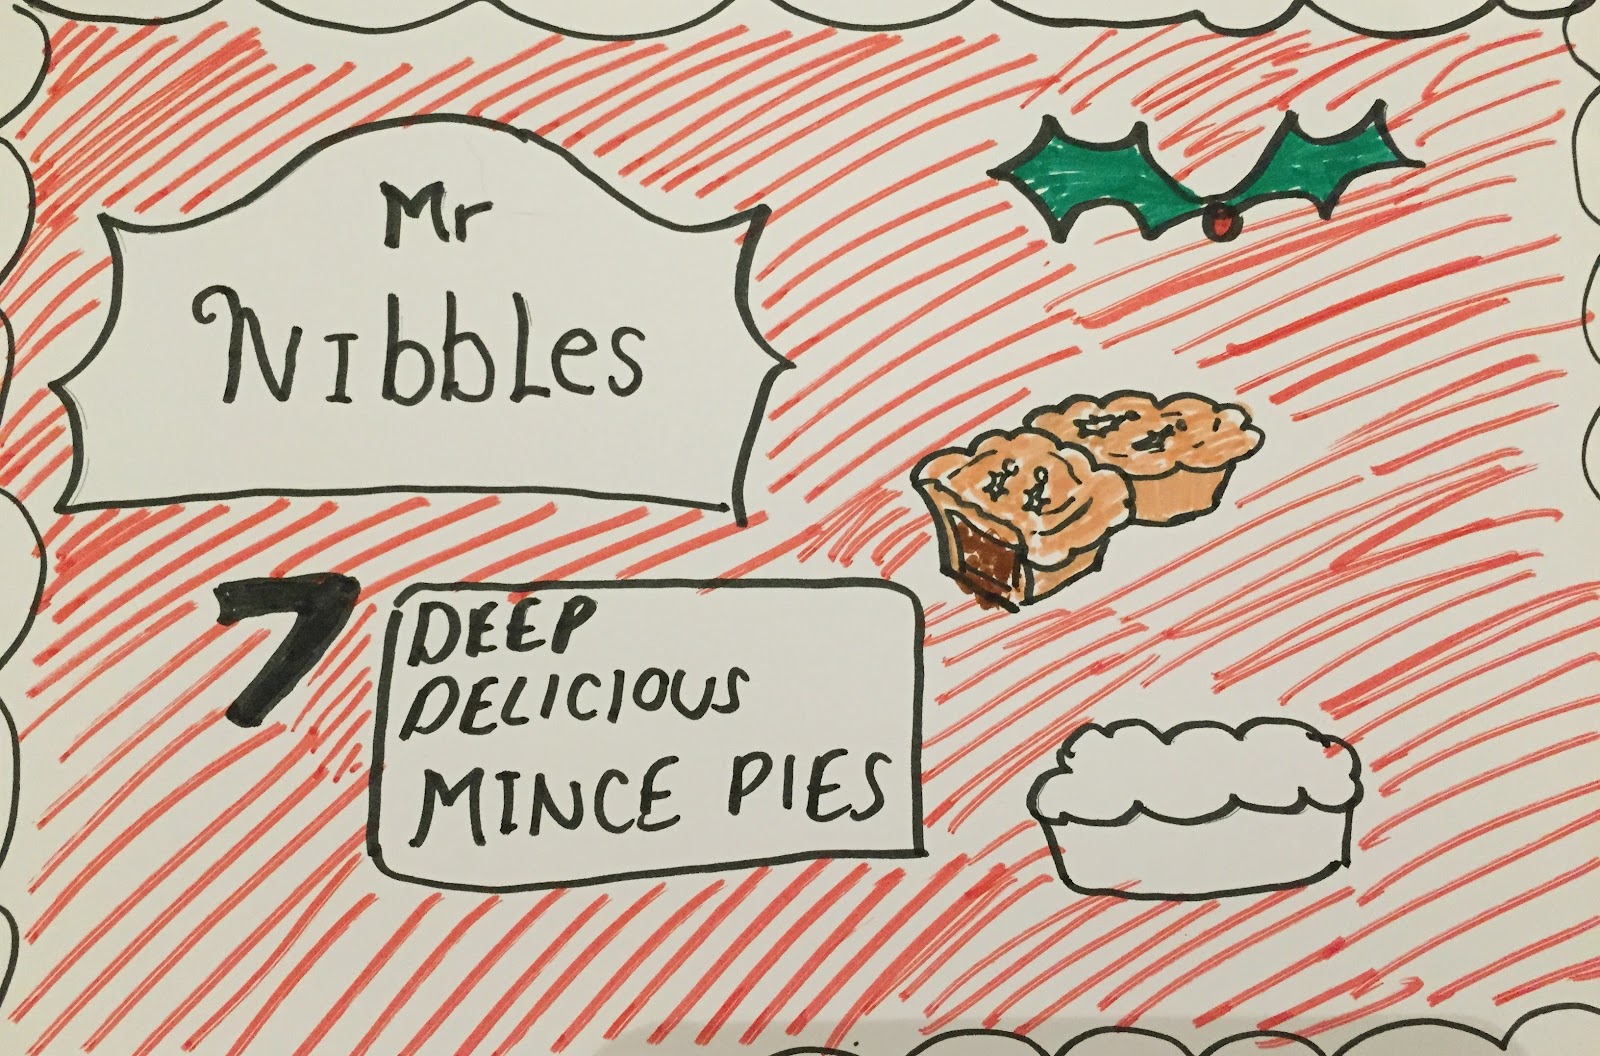 Mr
Nibbles
7
DEEP
DELICIOUS
MINCE PIES